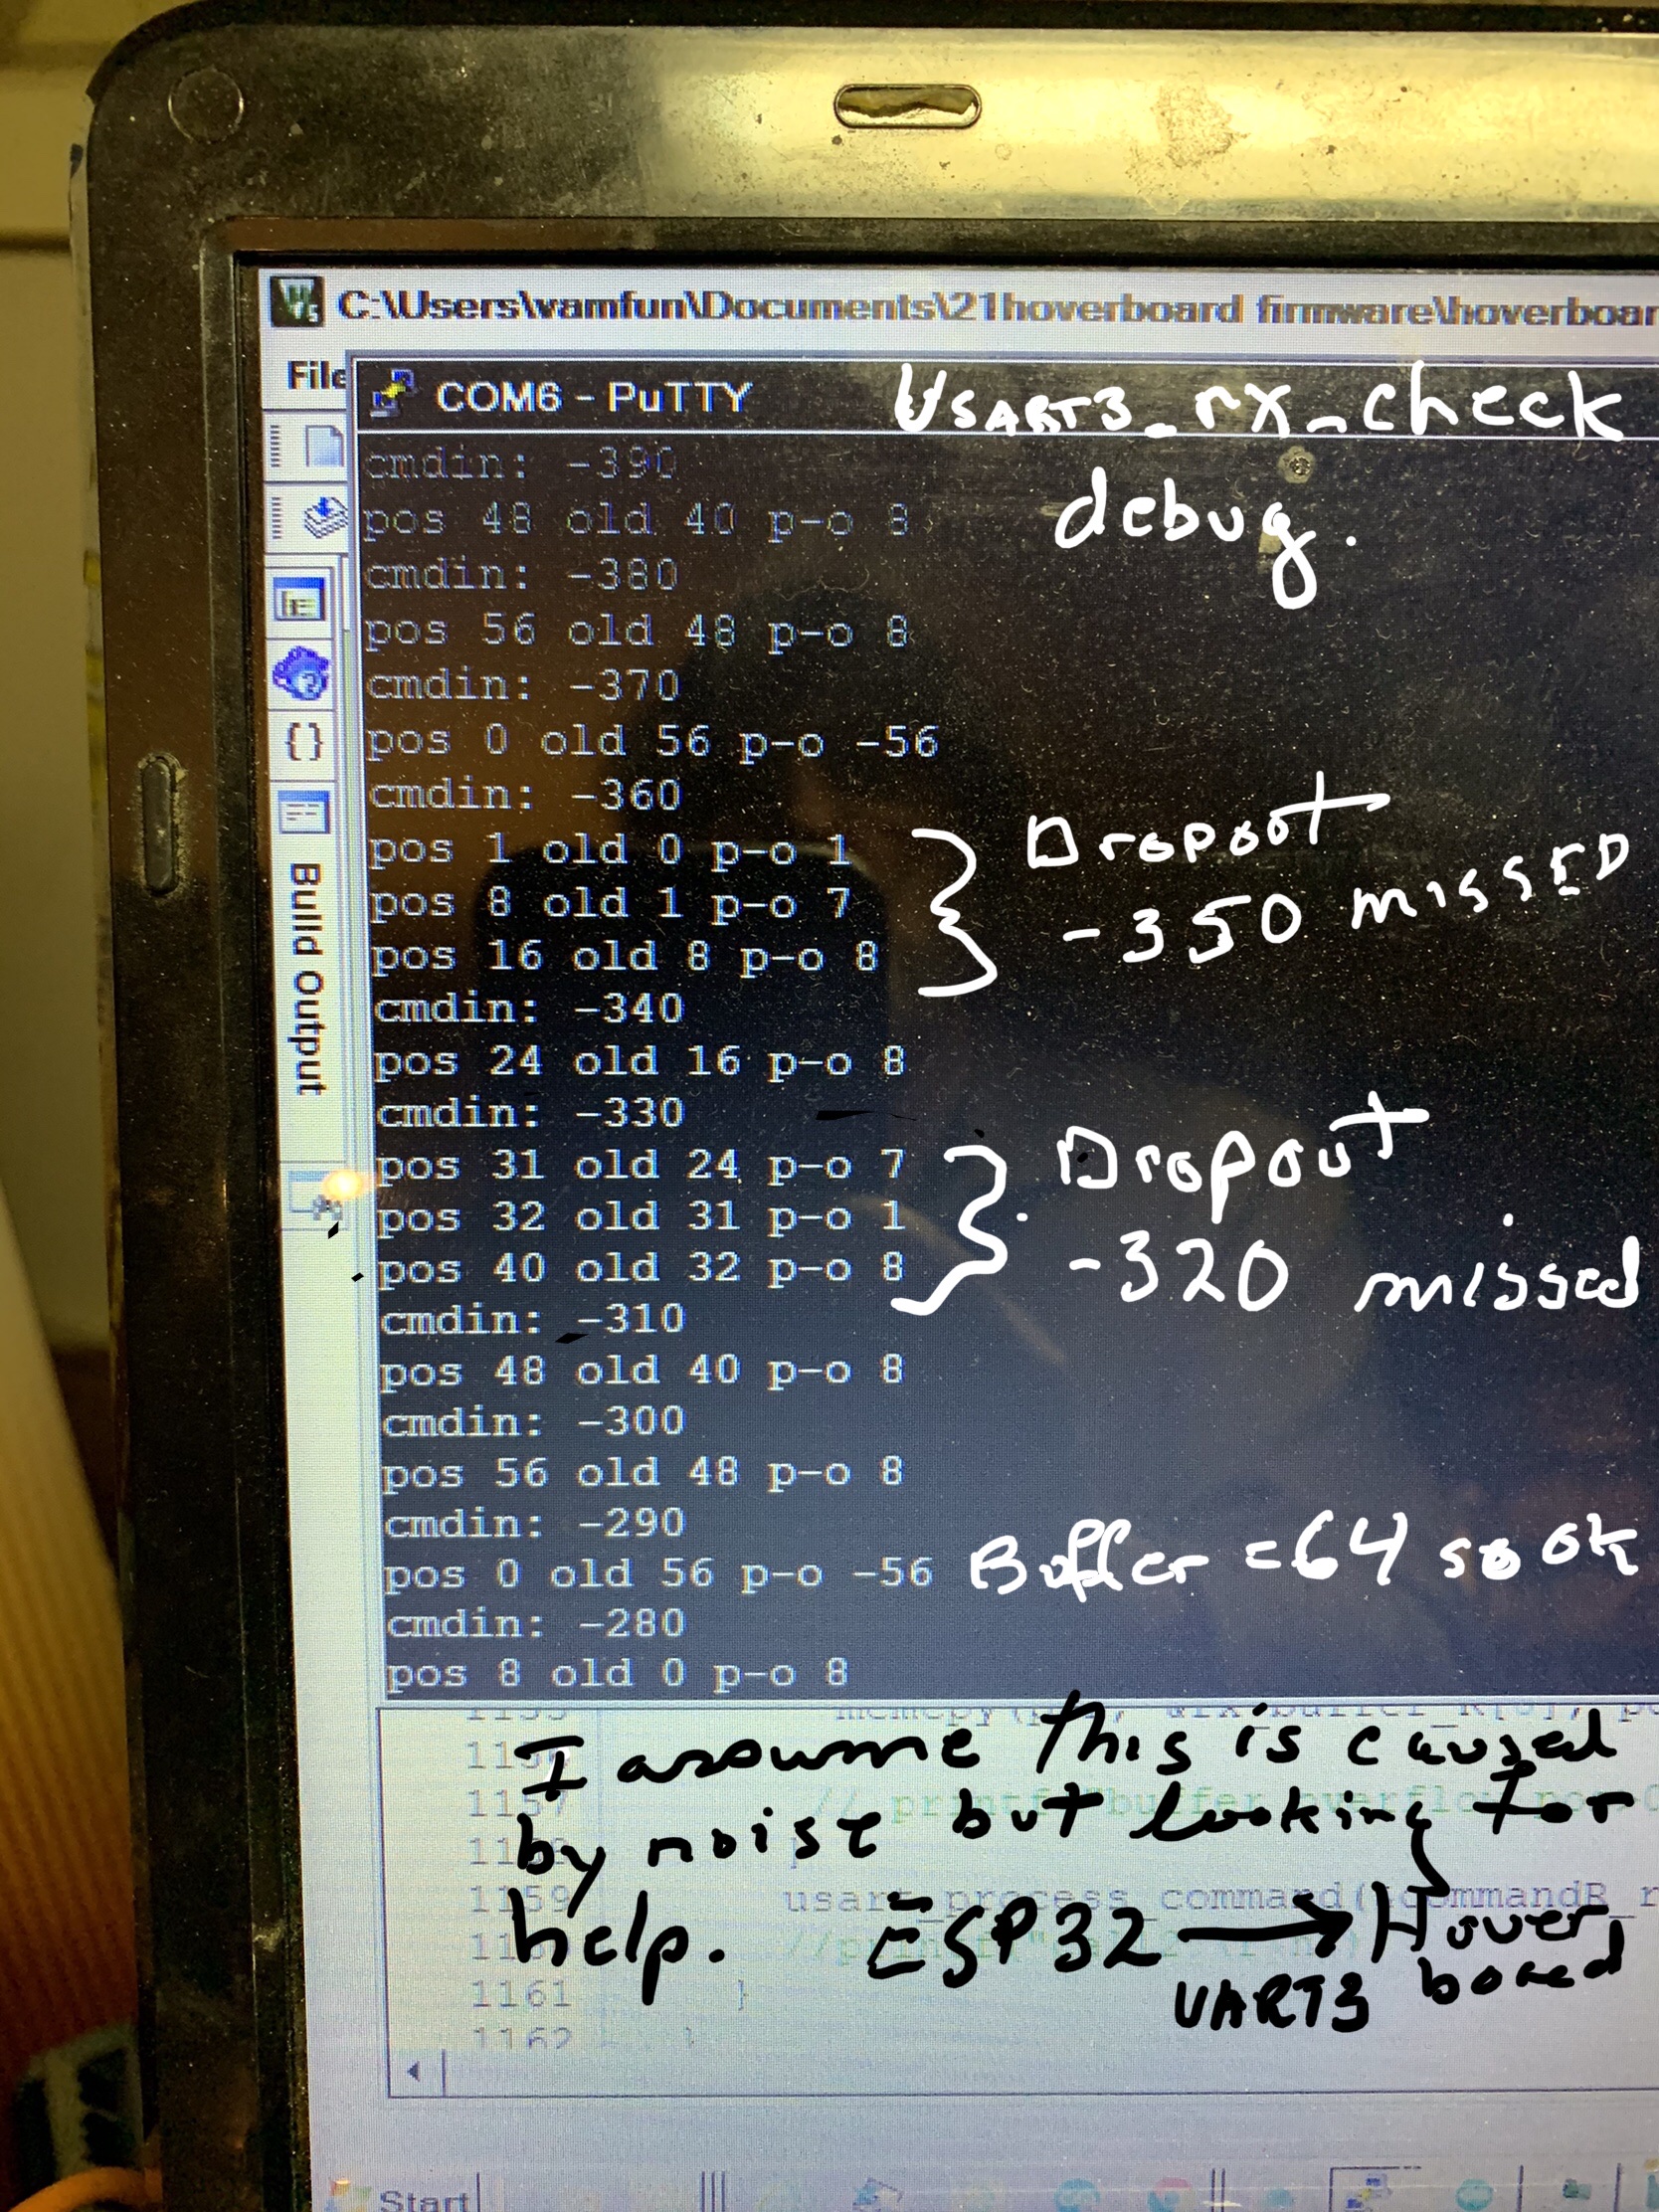 C:\Users\vamfun\Documents\21hoverboard firmware\hoverboar
File
COM6 - PuTTY
USART3_rx_check
debug.
cmdin: -390
pos 48 old 40 p-o 8
cmdin: -380
pos 56 old 48 p-o 8
cmdin: -370
pos 0 old 56 p-o -56
cmdin: -360
pos 1 old 0 p-o 1
pos 8 old 1 p-o 7
pos 16 old 8 p-o 8
Dropout
-350 missed
cmdin: -340
pos 24 old 16 p-o 8
cmdin: -330
pos 31 old 24 p-o 7
pos 32 old 31 p-o 1
pos 40 old 32 p-o 8
Dropout
-320 missed
cmdin: -310
pos 48 old 40 p-o 8
cmdin: -300
pos 56 old 48 p-o 8
cmdin: -290
pos 0 old 56 p-o -56 Buffer = 64 so ok
cmdin: -280
pos 8 old 0 p-o 8
Build Output
I assume this is caused
by noise but looking for
help. ESP32 → Hover
board
UART3
1159 usart_process_command(
1161 }
1162 }
Start